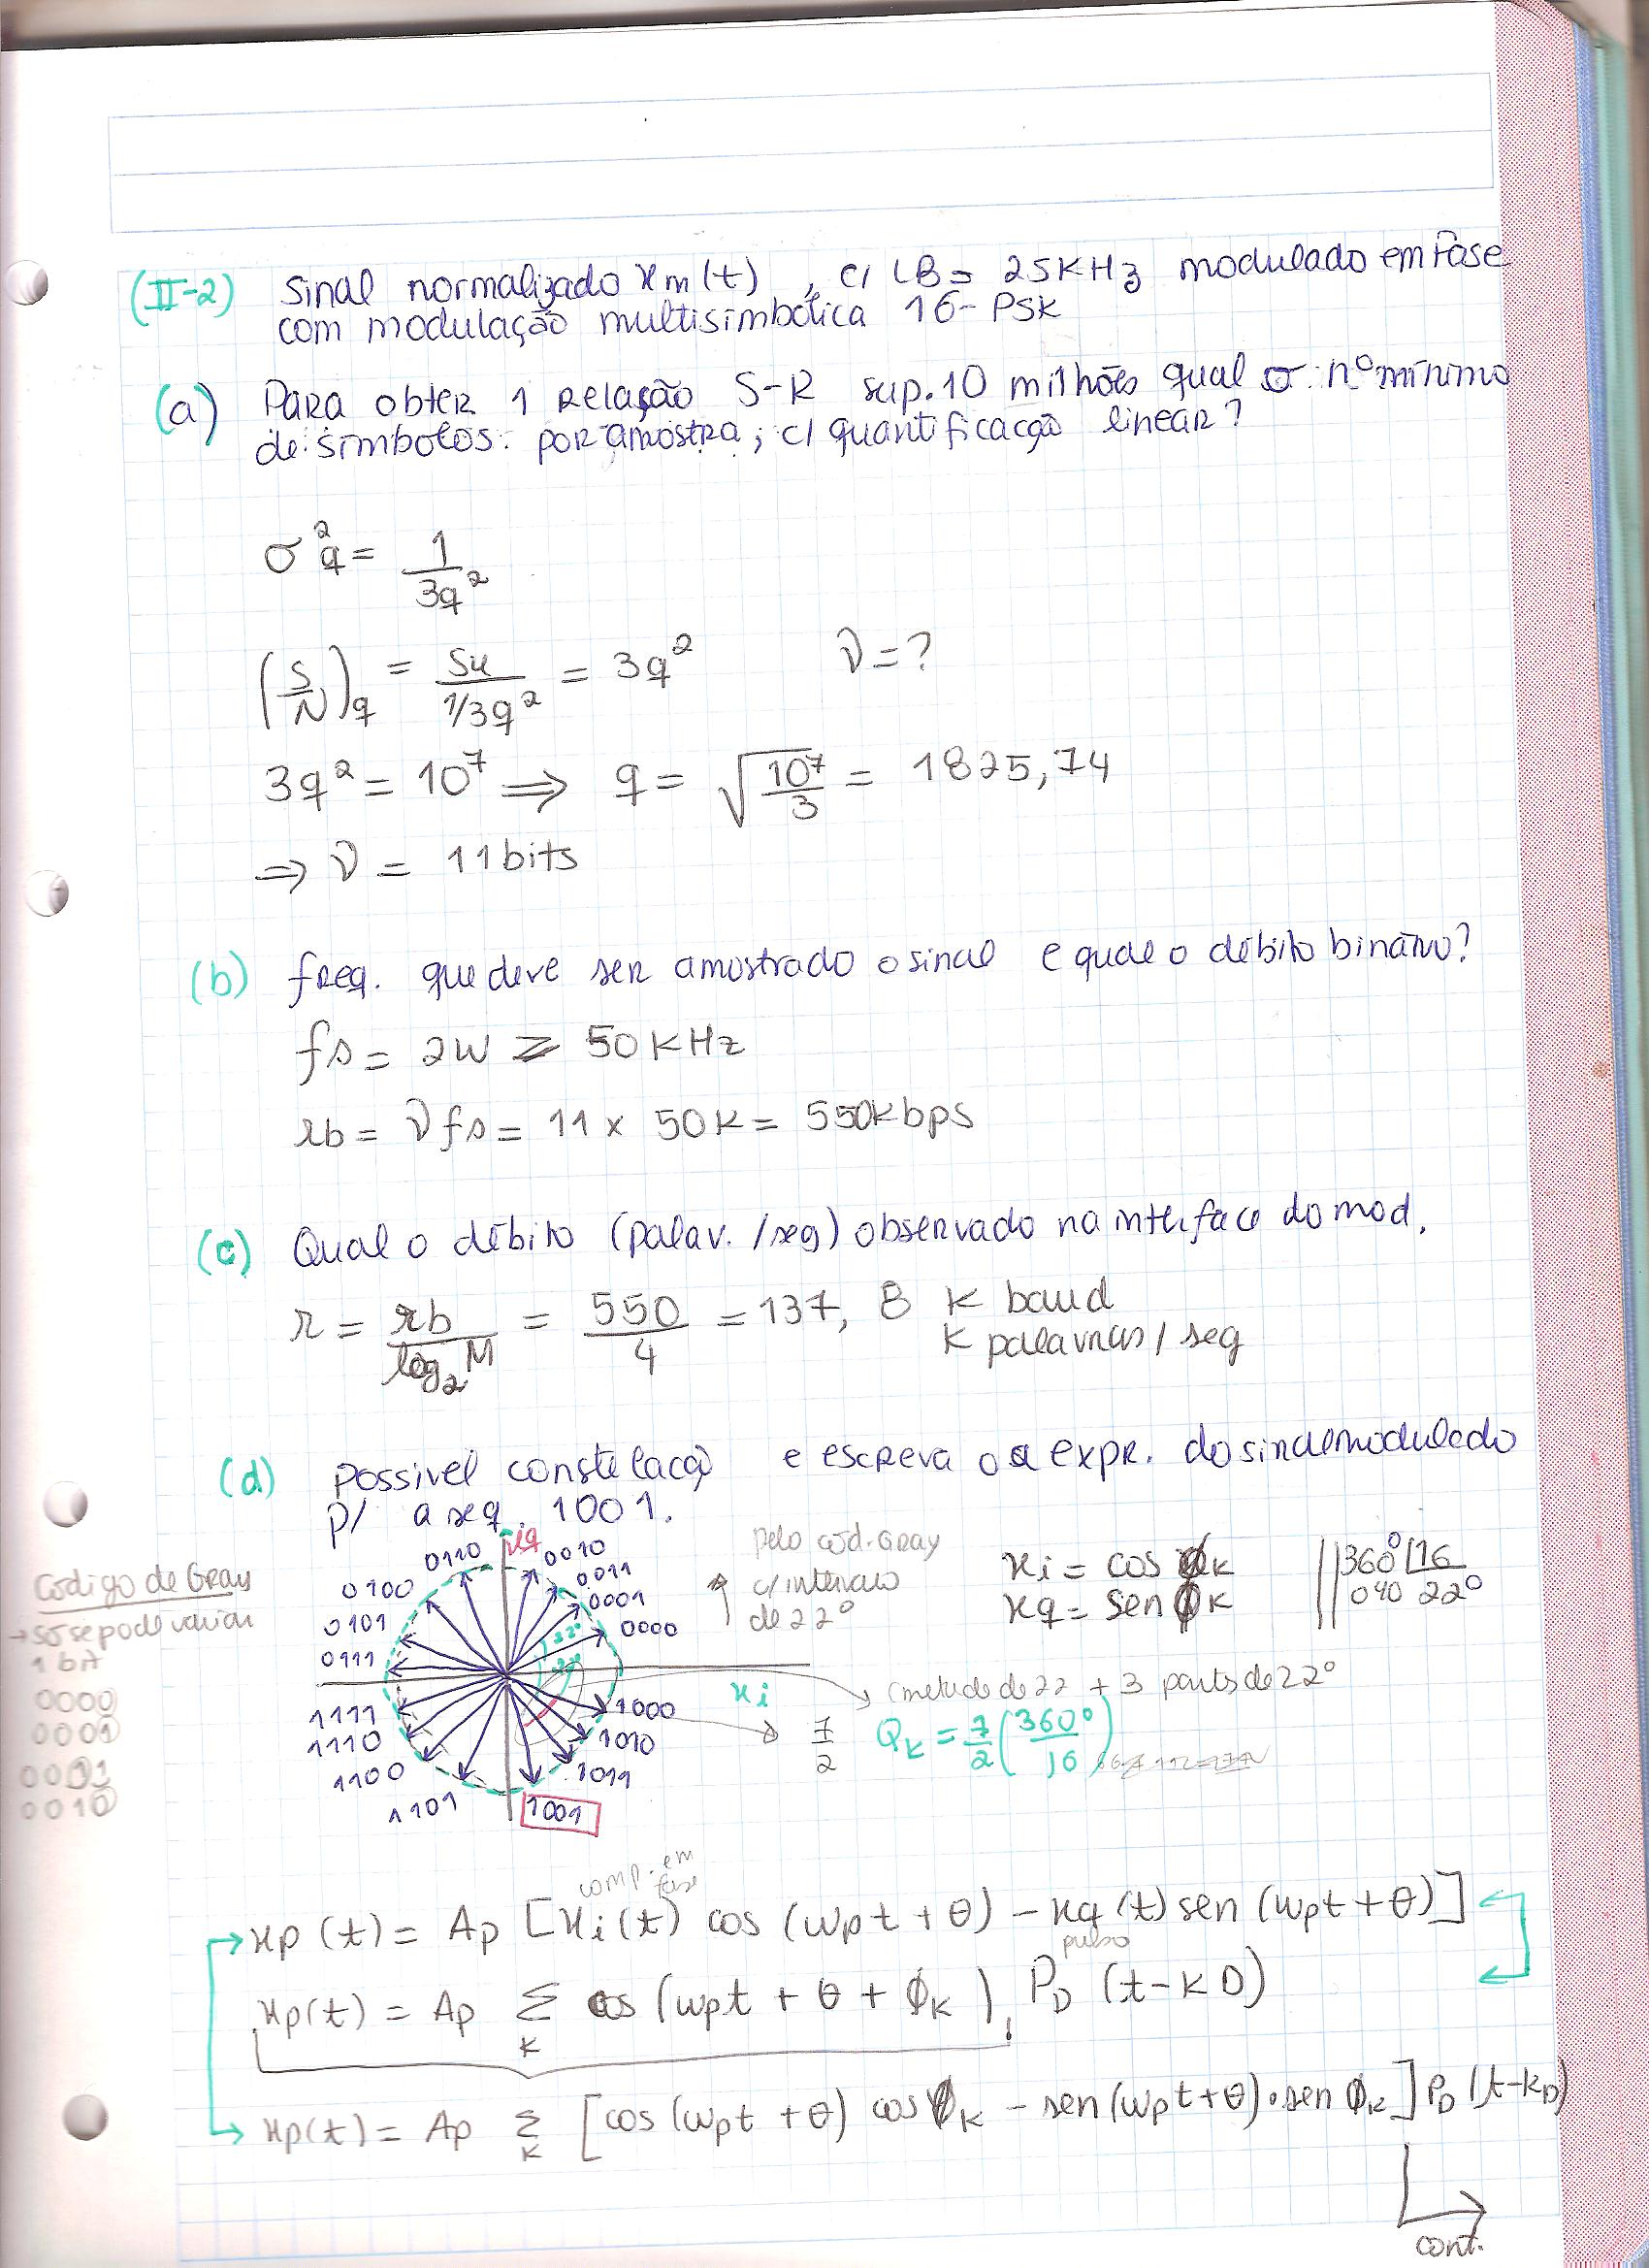 (II-2) Sinal normalizado xm(t), c/ LB = 25KHz modulado em fase
com modulação multisimbólica 16-PSK
(a) Para obter 1 relação S-R sup. 10 milhões qual o nº mínimo
de simbolos por amostra, c/ quantificacção linear?
σ²q = 1/3q²
(S/N)q = Sx / 1/3q² = 3q² ν = ?
3q² = 10⁷ ⇒ q = √(10⁷/3) = 1825,74
⇒ ν = 11 bits
(b) freq. que deve ser amostrado o sinal e qual e o débito binário?
fs = 2W ≥ 50KHz
rb = ν fs = 11 x 50K = 550Kbps
(c) Qual o débito (palav. /seg) observado na interface do mod.
r = rb / log₂M = 550/4 = 137,8 K baud
K palavras/seg
(d) Possivel constelacç e escreva a expr. do sinal modulado
p/ a seq. 1001.
xq
0110
0010
0100
0011
0101
0001
0111
0000
22°
xi
1111
1000
1110
1010
1100
1011
1101
1001
Codigo de Gray
→ só se pode variar
1 bit
0000
0001
0011
0010
pelo cod. Gray
c/ intervalo
de 22°
xi = cos ϕK
xq = sen ϕK
360° 16
040 22°
(metade de 22 + 3 parts de 22°
7/2 QK = 7/2 (360°/16)
comp. em
fase
xp(t) = Ap [xi(t) cos (wpt + θ) - xq(t) sen (wpt + θ)]
pulso
xp(t) = Ap Σ K cos (wpt + θ + ϕK) PD (t - KD)
xp(t) = Ap Σ K [cos (wpt + θ) cos ϕK - sen (wpt + θ) . sen ϕK] PD (t - KD)
cont.